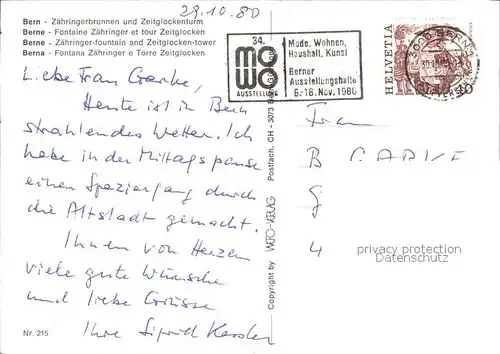 29.10.80
Bern - Zähringerbrunnen und Zeitglockenturm
Berne - Fontaine Zähringer et tour Zeitglocken
Berne - Zähringer-fountain and Zeitglocken-tower
Berna - Fontana Zähringer e Torre Zeitglocken
Liebe Frau
Heute ist in Bern
strahlendes Wetter. Ich
habe in der Mittagspause
einen Spaziergang durch
die Altstadt gemacht.
Ihnen von Herzen
viele gute Wünsche
und liebe Grüsse
Ihre Sigrid Kessler
Nr. 215
Copyright by WERO-VERLAG Postfach, CH - 3073
34.
mowo
AUSSTELLUNG
Mode, Wohnen,
Haushalt, Kunst
Berner
Ausstellungshalle
6.-18. Nov. 1980
HELVETIA
40
3000 BERN
Frau
B
G
4
privacy protection
Datenschutz